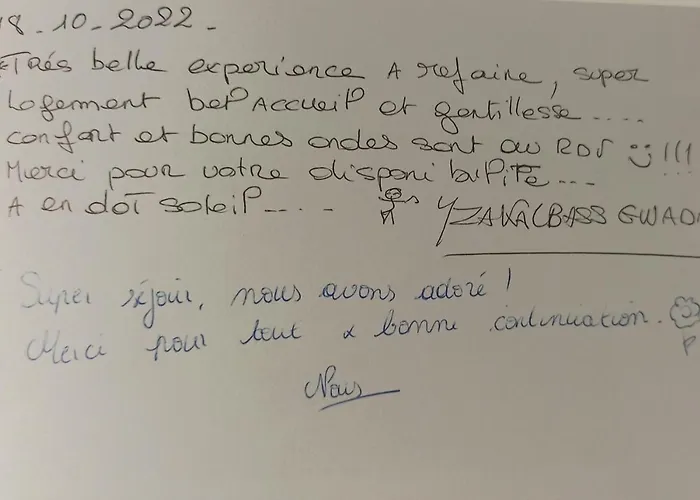 18.10.2022.
Trés belle experience A refaire, super
Logement bel Accueil et gentillesse....
confort et bonnes ondes sont au RDV !!!
Merci pour votre disponibilité...
A en dòt soleil....
Super séjour, nous avons adoré !
Merci pour tout & bonne continuation.
Nous